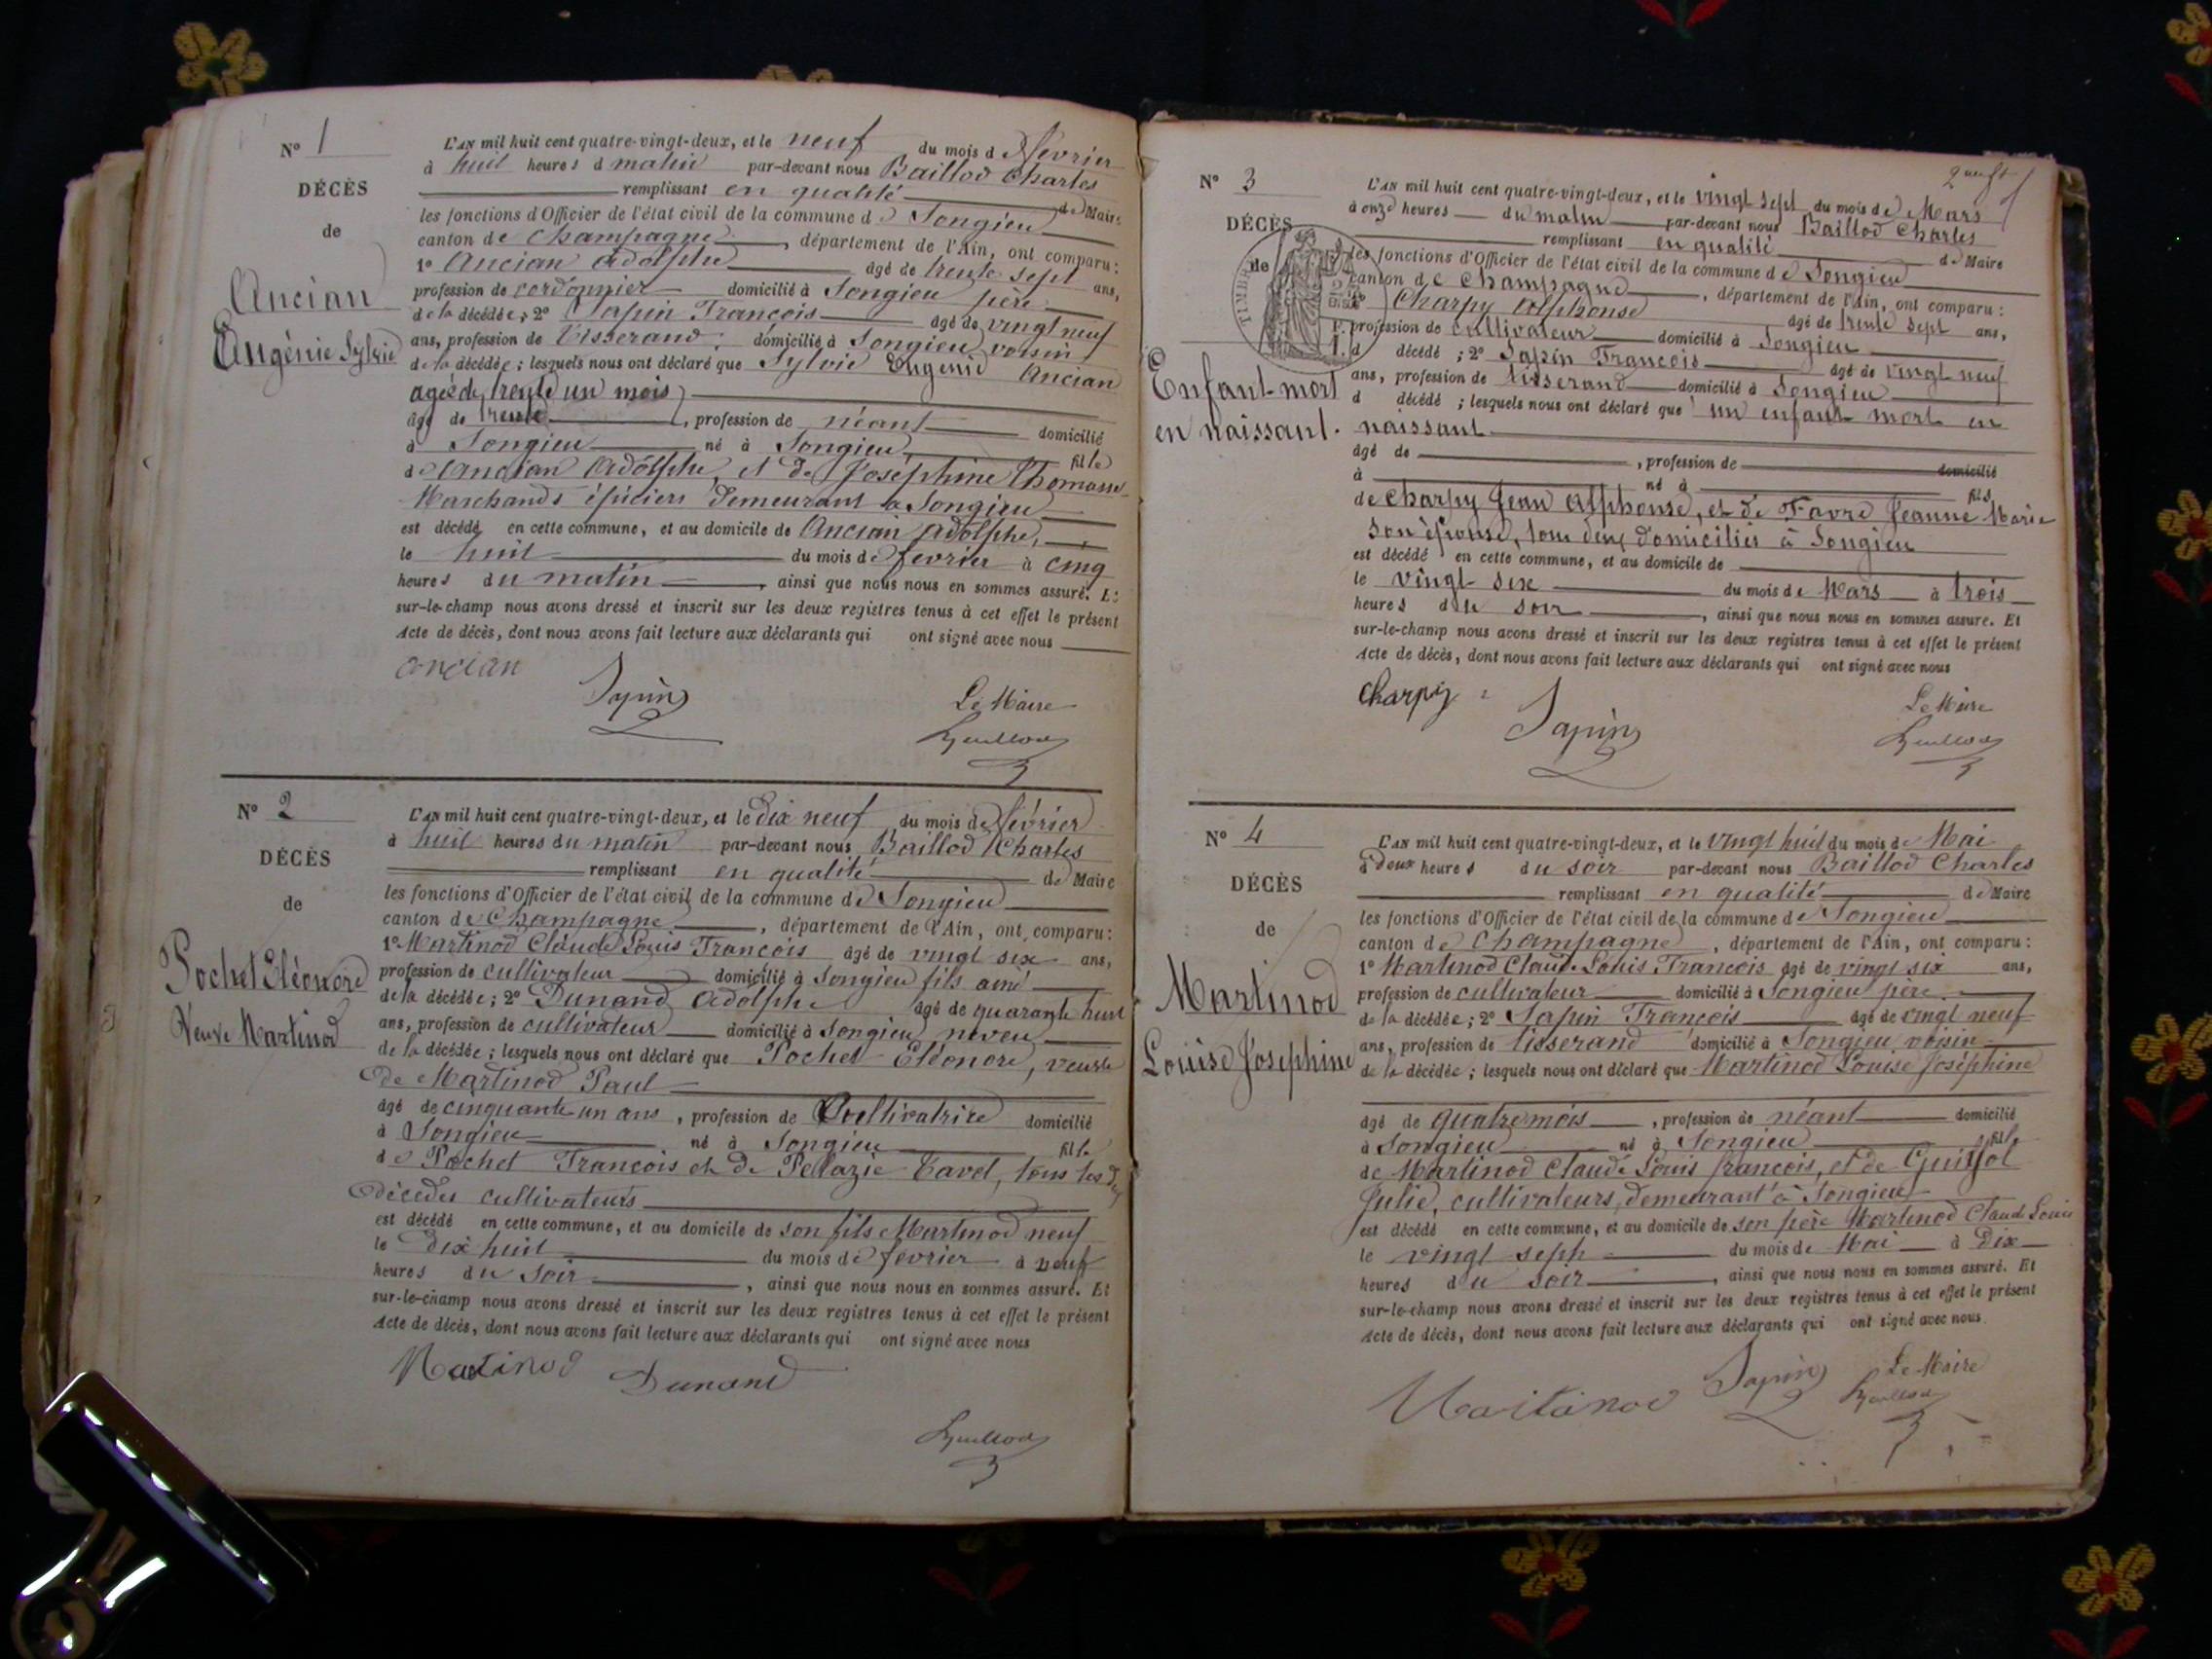 N° 1
DÉCÈS
de
Ancian
Eugénie Sylvie
L'AN mil huit cent quatre-vingt-deux, et le neuf du mois de février
à huit heures d matin par-devant nous Baillod Charles
remplissant en qualité de Maire
les fonctions d'Officier de l'état civil de la commune de Songieu
canton de Champagne, département de l'Ain, ont comparu :
1° Ancian Adolphe âgé de trente sept ans,
profession de cordonnier domicilié à Songieu père
de la décédée ; 2° Sapin François âgé de vingt neuf
ans, profession de tisserand, domicilié à Songieu voisin
de la décédée ; lesquels nous ont déclaré que Sylvie Eugénie Ancian
agée de trente un mois
âgé de trente, profession de néant domicilié
à Songieu né à Songieu, fille
de Ancian Adolphe, et de Joséphine Thomasse
Marchands épiciers demeurant à Songieu
est décédé en cette commune, et au domicile de Ancian Adolphe,
le huit du mois de fevrier à cinq
heures du matin, ainsi que nous nous en sommes assuré. Et
sur-le-champ nous avons dressé et inscrit sur les deux registres tenus à cet effet le présent
Acte de décès, dont nous avons fait lecture aux déclarants qui ont signé avec nous
ancian
Sapin
Le Maire
Baillod
N° 2
DÉCÈS
de
Pochet Eléonore
Veuve Martinod
L'AN mil huit cent quatre-vingt-deux, et le dix neuf du mois de février
à huit heures du matin par-devant nous Baillod Charles
remplissant en qualité de Maire
les fonctions d'Officier de l'état civil de la commune de Songieu
canton de Champagne, département de l'Ain, ont comparu :
1° Martinod Claude Louis François âgé de vingt six ans,
profession de cultivateur domicilié à Songieu fils ainé
de la décédée ; 2° Dunand Adolphe âgé de quarante huit
ans, profession de cultivateur domicilié à Songieu neveu
de la décédée ; lesquels nous ont déclaré que Pochet Eléonore, veuve
de Martinod Paul
âgé de cinquante un ans, profession de Cultivatrice domicilié
à Songieu né à Songieu fille
de Pochet François et de Pellazie Cavet, tous les deux
décédés cultivateurs
est décédé en cette commune, et au domicile de son fils Martinod neuf
le dix huit du mois de fevrier à neuf
heures du soir, ainsi que nous nous en sommes assuré. Et
sur-le-champ nous avons dressé et inscrit sur les deux registres tenus à cet effet le présent
Acte de décès, dont nous avons fait lecture aux déclarants qui ont signé avec nous
Matinod
Dunand
Baillod
N° 3
DÉCÈS
de
TIMBRE
Enfant mort
en naissant.
L'AN mil huit cent quatre-vingt-deux, et le vingt sept du mois de Mars
à onze heures du matin par-devant nous Baillod Charles
remplissant en qualité de Maire
les fonctions d'Officier de l'état civil de la commune de Songieu
canton de Champagne, département de l'Ain, ont comparu :
Charpy Alphonse âgé de trente sept ans,
profession de cultivateur domicilié à Songieu
d décédé ; 2° Sapin François âgé de vingt neuf
ans, profession de tisserand domicilié à Songieu
d décédé ; lesquels nous ont déclaré que un enfant mort en
naissant
âgé de, profession de domicilié
à né à fils
de Charpy Jean Alphonse, et de Favre Jeanne Marie
son épouse, tous deux domiciliés à Songieu
est décédé en cette commune, et au domicile de
le vingt six du mois de Mars à trois
heures du soir, ainsi que nous nous en sommes assuré. Et
sur-le-champ nous avons dressé et inscrit sur les deux registres tenus à cet effet le présent
Acte de décès, dont nous avons fait lecture aux déclarants qui ont signé avec nous
Charpy
Sapin
Le Maire
Baillod
N° 4
DÉCÈS
de
Martinod
Louise Josephine
L'AN mil huit cent quatre-vingt-deux, et le vingt huit du mois de Mai
à deux heures du soir par-devant nous Baillod Charles
remplissant en qualité de Maire
les fonctions d'Officier de l'état civil de la commune de Songieu
canton de Champagne, département de l'Ain, ont comparu :
1° Martinod Claude Louis François âgé de vingt six ans,
profession de cultivateur domicilié à Songieu père
de la décédée ; 2° Sapin François âgé de vingt neuf
ans, profession de tisserand domicilié à Songieu voisin
de la décédée ; lesquels nous ont déclaré que Martinod Louise Joséphine
âgé de quatre mois, profession de néant domicilié
à Songieu né à Songieu fille
de Martinod Claude Louis françois, et de Guillot
Julie, cultivateurs, demeurant à Songieu
est décédé en cette commune, et au domicile de son père Martinod Claude Louis
le vingt sept du mois de Mai à dix
heures du soir, ainsi que nous nous en sommes assuré. Et
sur-le-champ nous avons dressé et inscrit sur les deux registres tenus à cet effet le présent
Acte de décès, dont nous avons fait lecture aux déclarants qui ont signé avec nous
Martinod
Sapin
Le Maire
Baillod